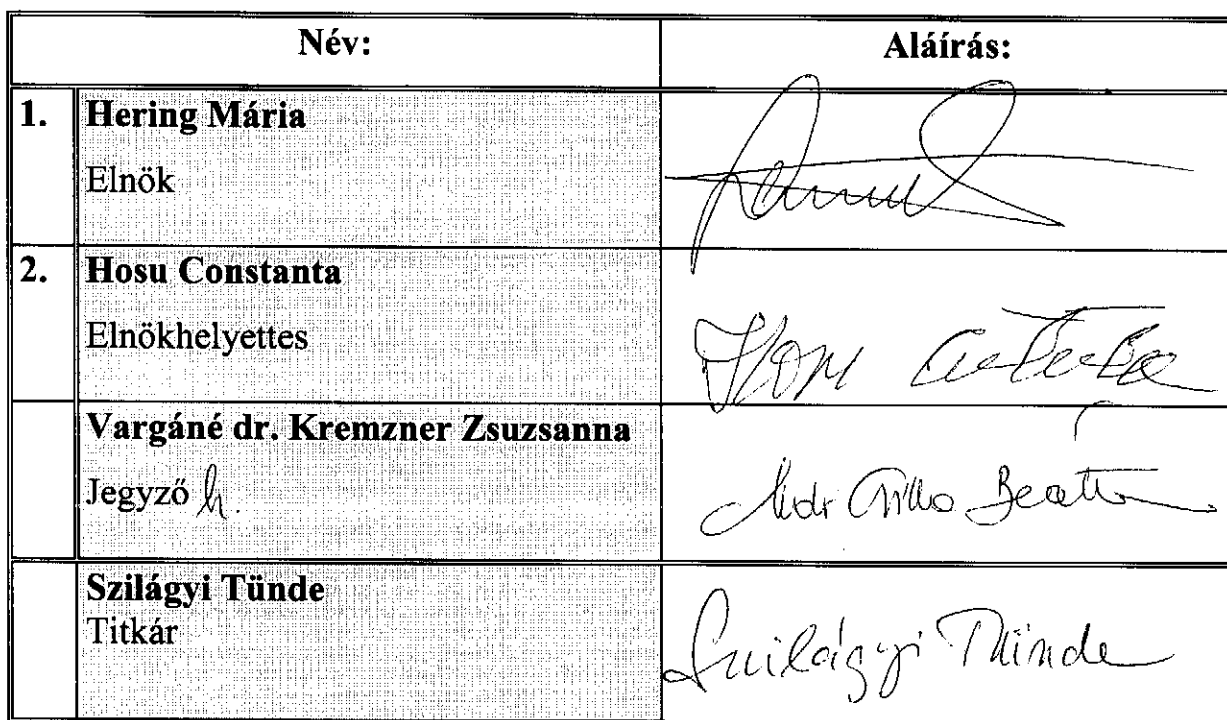 Név: Aláírás:
1. Hering Mária
Elnök
2. Hosu Constanta
Elnökhelyettes
Vargáné dr. Kremzner Zsuzsanna
Jegyző h.
Beatt
Szilágyi Tünde
Titkár
Szilágyi Tünde